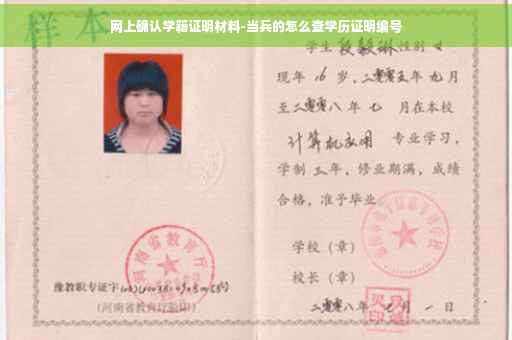 网上确认学籍证明材料-当兵的怎么查学历证明编号
样本
学生 段毅琳 性别 女
现年 16 岁,二零零五年 九月
至二零零八年 七 月在本校
计算机应用 专业学习,
学制 三 年,修业期满,成绩
合格,准予毕业
学校(章)
校长(章)
二零零八年 月 一 日
河南省教育厅
豫教职专证字
(河南省教育厅验印)